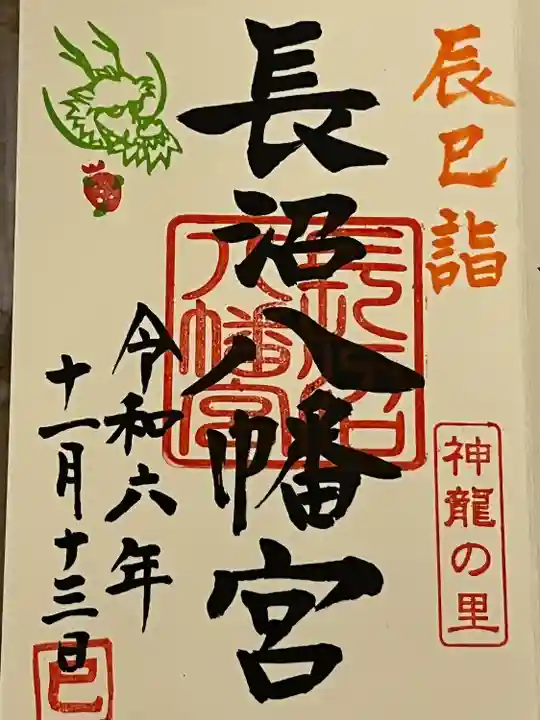 辰巳詣
神龍の里
長沼八幡宮
長沼
八幡宮
令和六年
十一月十三日
巳